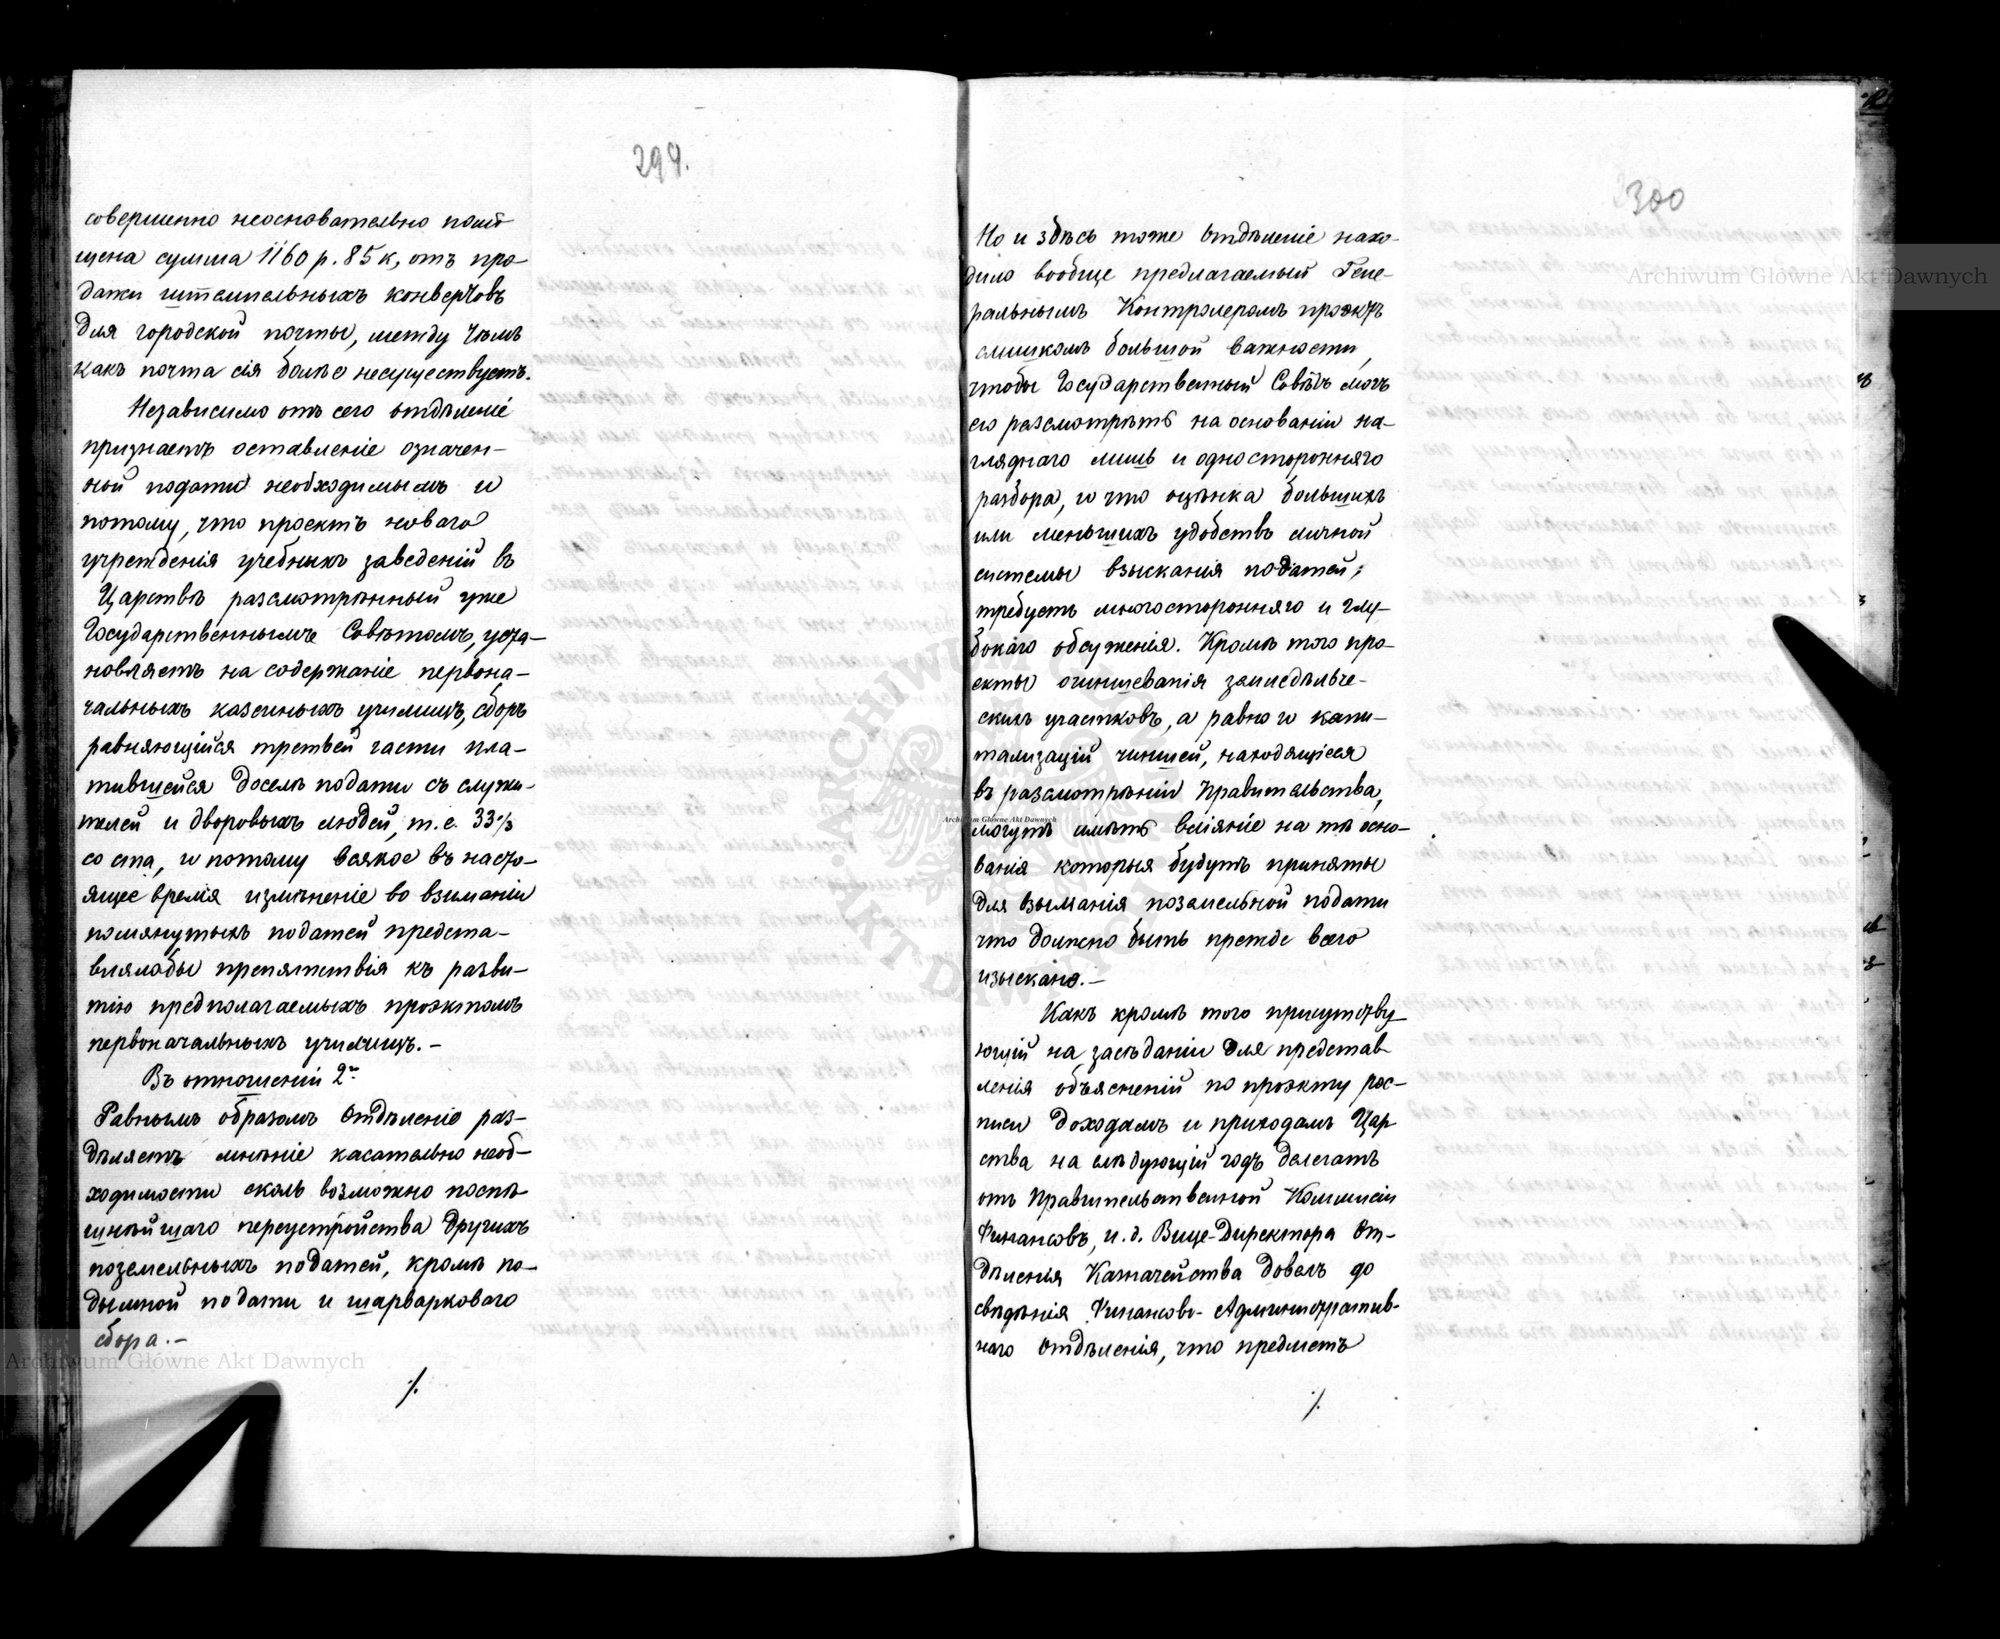 299.
совершенно неосновательно помѣ-
щена сумма 1160 р. 85 к, отъ про-
дажи штемпельныхъ конвертовъ
для городской почты, между чѣмъ
какъ почта сія болѣе несуществуетъ.
Независимо отъ сего Отдѣленіе
признаетъ оставленіе означен-
ной подати необходимымъ и
потому, что проектъ новаго
учрежденія учебныхъ заведеній въ
Царствѣ разсмотрѣнный уже
Государственнымъ Совѣтомъ, уста-
новляетъ на содержаніе первона-
чальныхъ казенныхъ училищъ, сборъ
равняющійся третьей части пла-
тившейся доселѣ подати съ служи-
телей и дворовыхъ людей, т. е. 33%
со ста, и потому всякое въ насто-
ящее время измѣненіе во взиманіи
помянутыхъ податей предста-
влялобы препятствія къ разви-
тію предполагаемыхъ проэктомъ
первоначальныхъ училищъ. –
Въ отношеніи 2го
Равнымъ образомъ Отдѣленіе раз-
дѣляетъ мнѣніе касательно необ-
ходимости сколь возможно поспѣ-
шнѣйшаго переустройства другихъ
поземельныхъ податей, кромѣ по-
дымной подати и шарварковаго
сбора. –
/.
300
Но и здѣсь тоже Отдѣленіе нахо-
дило вообще предлагаемый Гене-
ральнымъ Контролеромъ проэктъ
слишкомъ большой важности,
чтобы Государственный Совѣтъ могъ
его разсмотрѣть на основаніи на-
гляднаго лишь и односторонняго
разбора, и что оцѣнка большихъ
или меньшихъ удобствъ личной
системы взысканія податей,
требуетъ многосторонняго и глу-
бокаго обсуженія. Кромѣ того про-
екты очиншеванія землedѣльче-
скихъ участковъ, а равно и капи-
тализацій чиншей, находящіеся
въ разсмотрѣніи Правительства,
могутъ имѣть вліяніе на тѣ осно-
ванія которыя будутъ приняты
для взыманія поземельной подати
что должно быть прежде всего
изыскано. –
Какъ кромѣ того присутству
ющій на засѣданіи для представ-
ленія объясненій по проэкту рос-
писи доходамъ и приходамъ Цар
ства на слѣдующій годъ делегатъ
отъ Правительственной Коммисіи
Финансовъ, и. д. Вице-Директора От-
дѣленія Казначейства довелъ до
свѣдѣнія Финансово-Административ-
наго Отдѣленія, что предметъ
/.
Archiwum Główne Akt Dawnych
Archiwum Główne Akt Dawnych
Archiwum Główne Akt Dawnych
ARCHIWUM GŁÓWNE AKT DAWNYCH